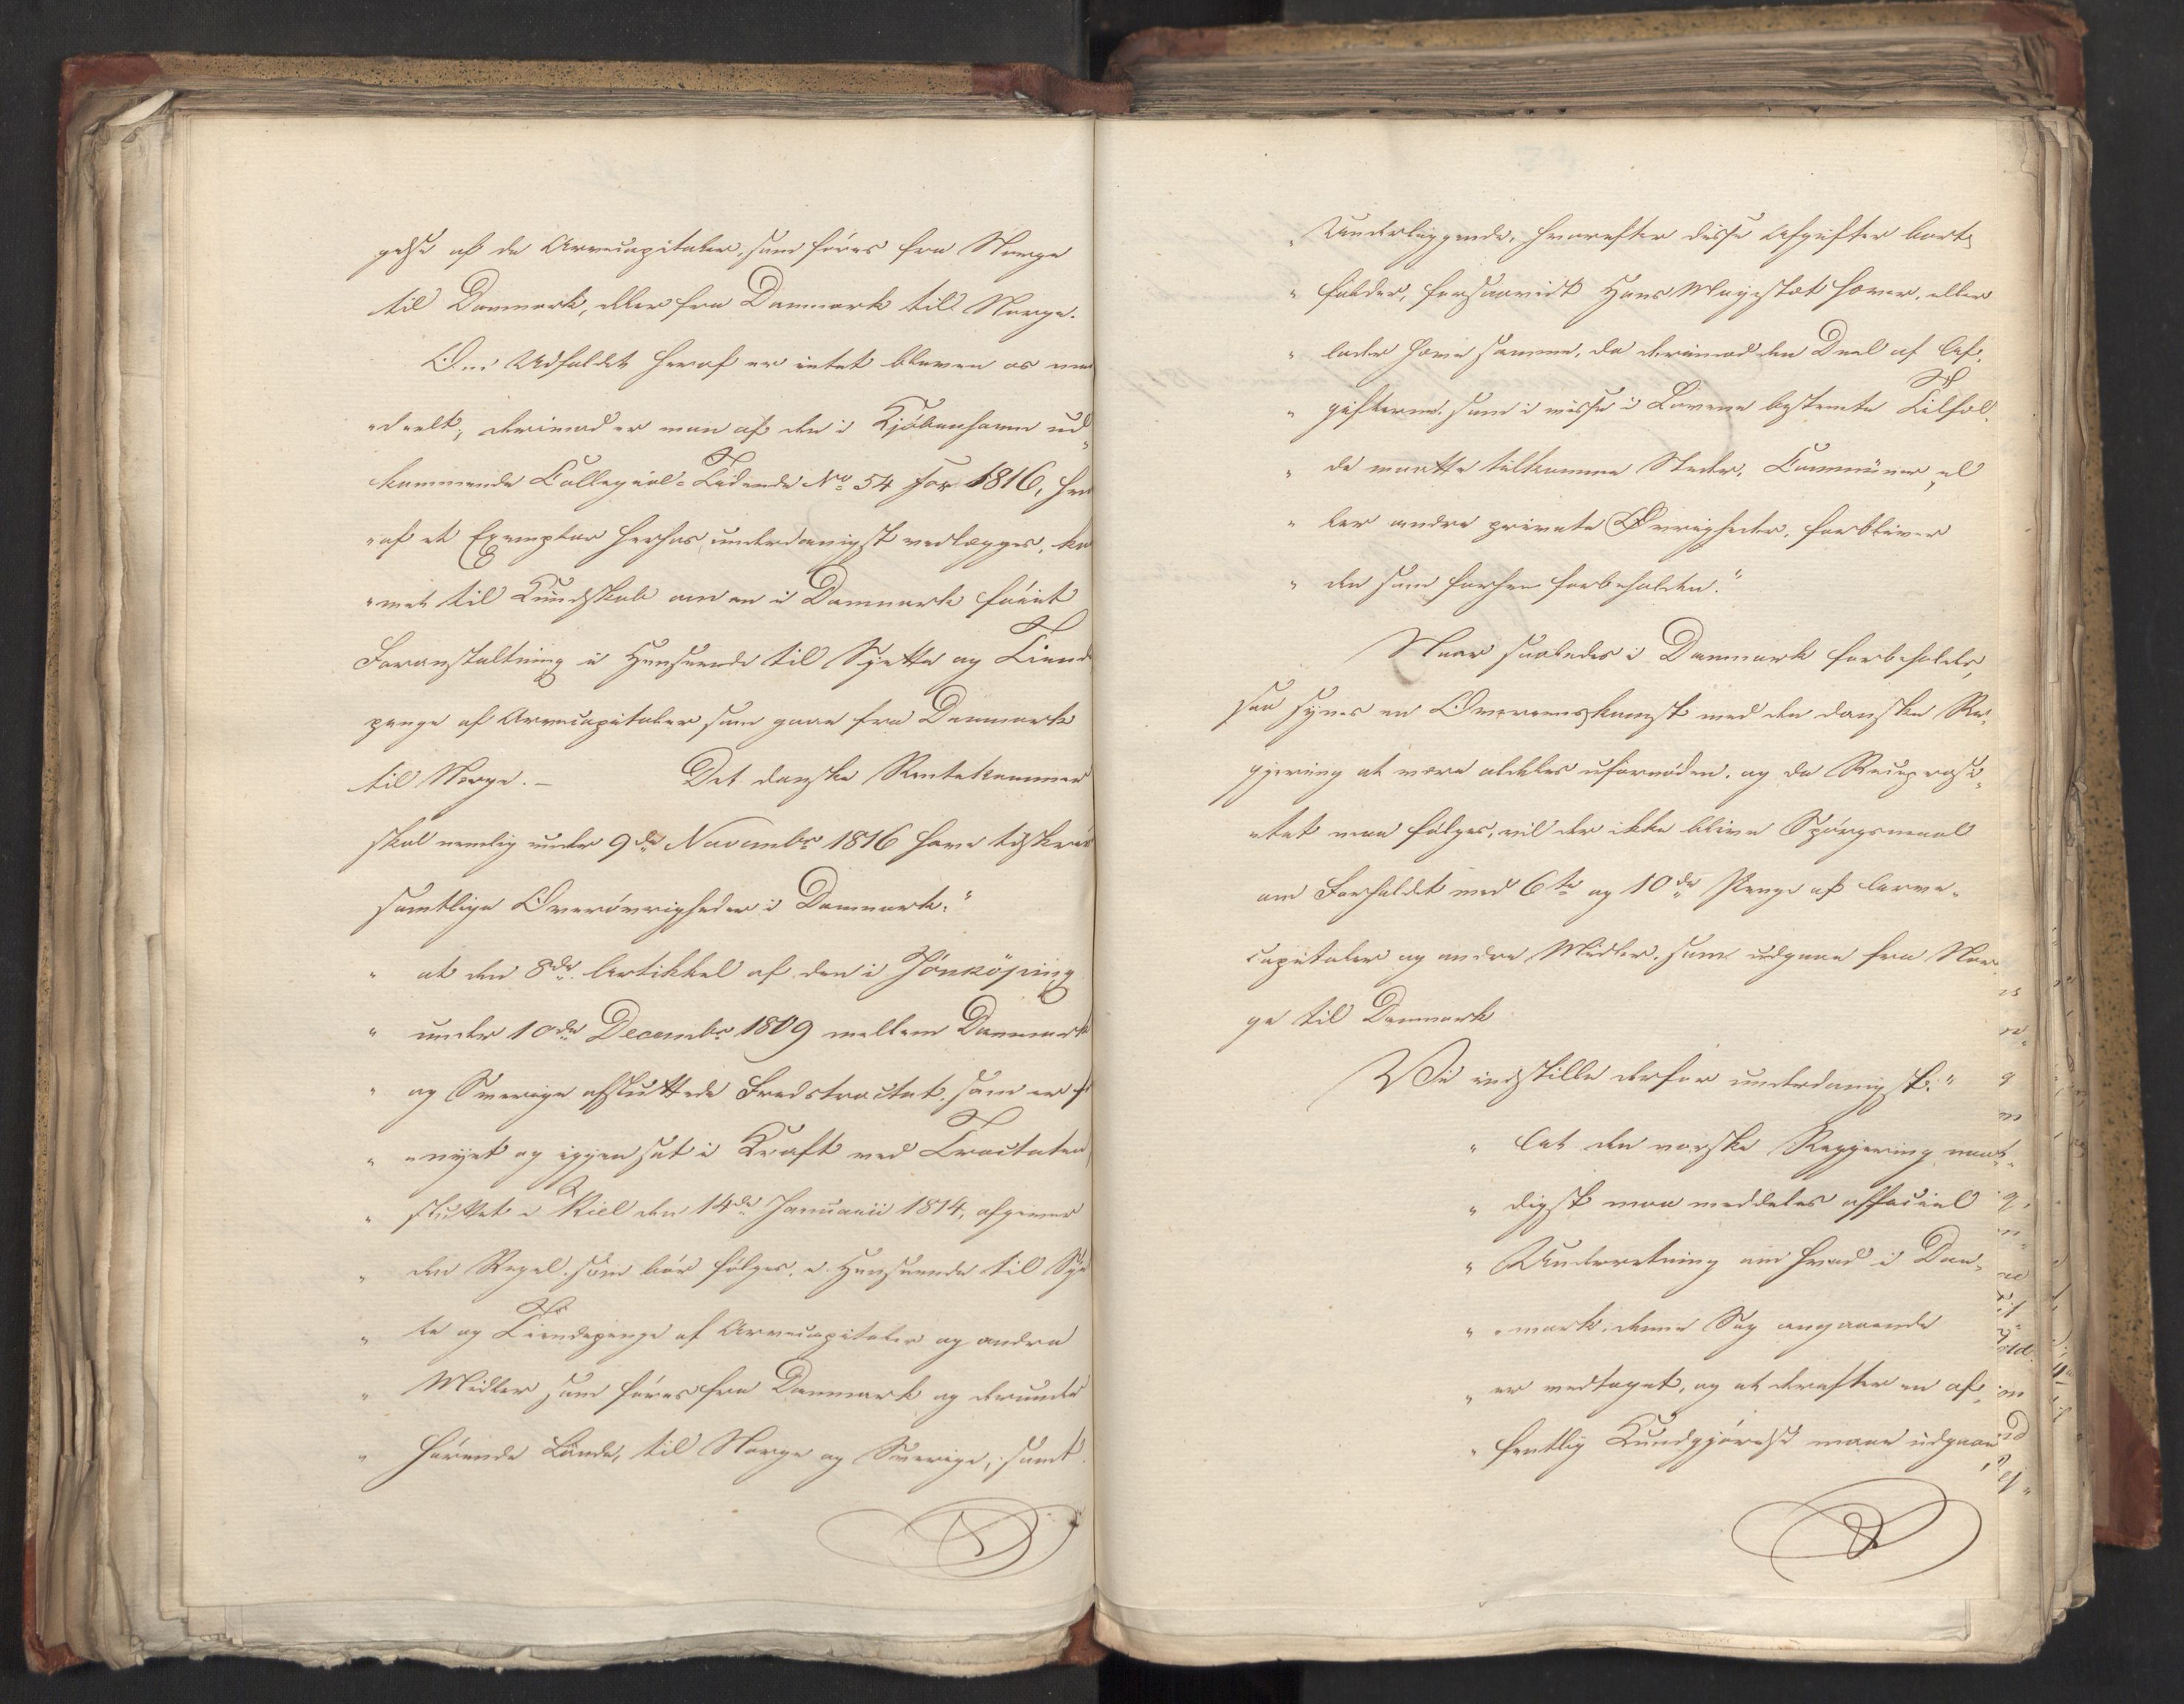 gelse af de Arvecapitaler, som føres fra Norge
til Danmark, eller fra Danmark til Norge.
Om Udfaldet heraf er intet bleven os med
deelt; derimod er man af den i Kjøbenhavn ud
kommende Collegial-Tidende No 54 for 1816, hvor
af et Exemplar herhos underdanigst vedlægges, kom
met til Kundskab om en i Danmark føiet
Foranstaltning i Henseende til Sjette og Tiende
penge af Arvecapitaler som gaae fra Danmark
til Norge. – Det danske Rentekammer
skal nemlig under 9de Novembr 1816 have tilskrevet
samtlige Overøvrigheder i Danmark:"
" at den 8de Artikkel af den i Jönköping
" under 10de Decembr 1809 mellem Danmark
" og Sverige afsluttede Fredstractat, som er for
" nyet og igjen sat i Kraft ved Tractaten
" sluttet i Kiel den 14de Januarii 1814, afgiver
" den Regel, som bør følges, i Henseende til Sjet
" te og Tiendepenge af Arvecapitaler og andre
" Midler som føres fra Danmark og derunder
" hørende Lande, til Norge og Sverige, samt
" Underliggende, hvorefter disse Afgifter bort
" falder, forsaavidt Hans Majestæt hæver, eller
" lader hæve samme, da derimod den Deel af Af
" gifterne, som i visse i Lovene bestemte Tilfæl
" de maatte tilkomme Steder, Communer el
" ler andre private Øvrigheder, forbliver
" den som forhen forbeholden."
Naar saaledes i Danmark forholdes,
saa synes en Overeenskomst med den danske Re
gjering at være aldeles ufornøden, og da Reciproci
tet maa følges, vil der ikke blive Spørgsmaal
om Forholdet med 6te og 10de Penge af Arve
capitaler og andre Midler, som udgaae fra Nor
ge til Danmark
Vi indstille derfor underdanigst:"
" At den norske Regjering naa
" digst maa meddeles officiel
" Underretning om hvad i Dan
" mark, denne Sag angaaende
" er vedtaget, og at derefter en of
" fentlig Kundgjørelse maae udgaae